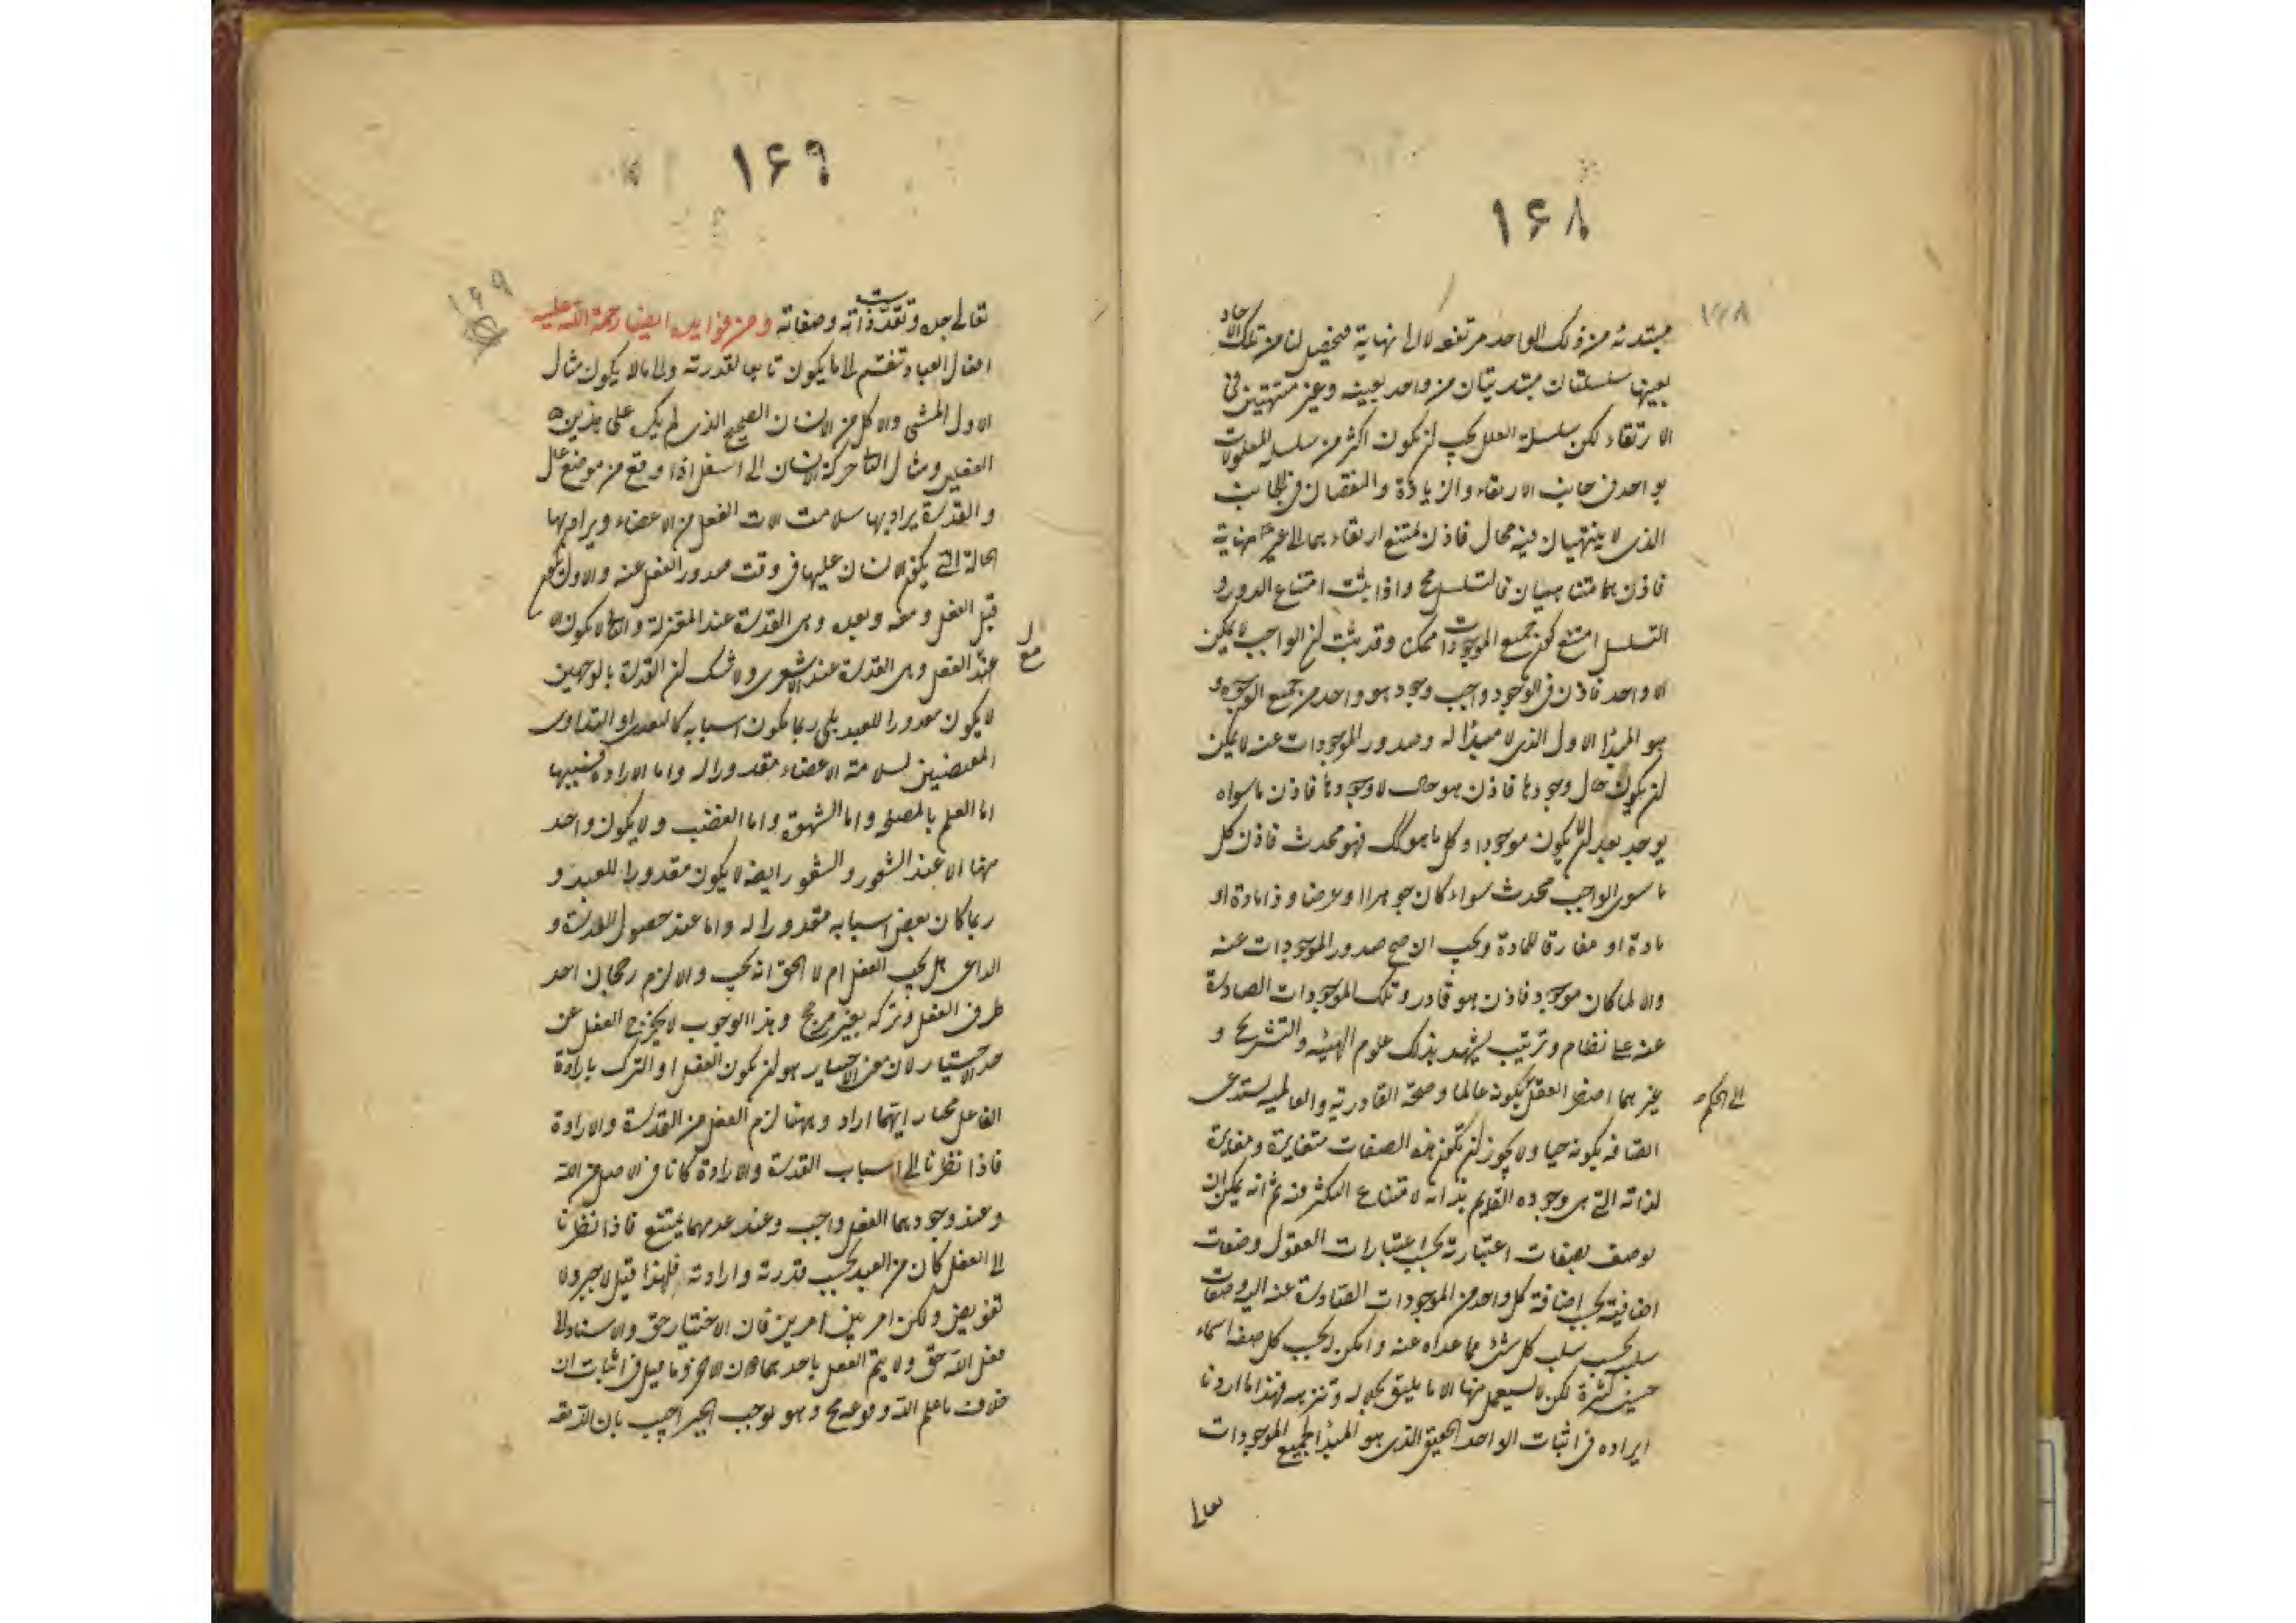 ١۶٨
مبتدئه من ذلك الواحد مرتقعه لا الى نهاية فيحصل لنا من تلك الاحاد
بعينها سلسلتان مبتديتان من واحد بعينه وغير منتهيتين فى
الارتقاء لكن سلسلة العلل يجب لن يكون اكثر من سلسلة المعلولات
بواحد فى جانب الارتقاء والزيادة والنقصان فى الجانب
الذى لا ينتهيان فيه محال فاذن يمتنع ارتقاء هما الى غير نهاية
فاذن هما متناهيان فالتسلسل مح واذا ثبت امتناع الدور و
التسلسل امتنع كون جميع الموجودات ممكن وقد ثبت لن الواجب لا يمكن
الا واحد فاذن فى الوجود واجب وجود هو واحد من جميع الوجوه و
هو المبدأ الاول الذى لا مبدأ له وصدور الموجودات عنه لا يمكن
لن يكون حال وجودها فاذن هو حال لا وجودها فاذن ما سواه
يوجد بعد لن لا يكون موجودا وكل ما هو كك فهو محدث فاذن كل
ما سوى الواجب محدث سواء كان جوهرا او عرضا وذا مادة او
مادة او مفارقا للمادة ويجب ان صح صدور الموجودات عنه
والا لما كان موجود فاذن هو قادر وتلك الموجودات الصادرة
عنه على نظام وترتيب يشهد بذلك علوم الهيئه والتشريح و
غيرهما اضطر العقل بكونه عالما وصحة القادرية والعالمية يستدعى
الى الحكم
اتصافه بكونه حيا ولا يجوز لن تكون هذه الصفات متغايرة ومغايرة
لذاته التى هى وجوده القايم بذاته لامتناع التكثر فيه ثم انه يمكن ان
يوصف بصفات اعتبارية بحسب اعتبارات العقول وصفات
اضافية بحسب اضافة كل واحد من الموجودات الصادرة عنه اليه وصفات
سلبية بحسب سلب كل شئ مما عداه عنه وامكن بحسب كل صفة اسماء
حسنى كثيرة لكن لا يستعمل منها الا ما يليق بجلاله وتنزهه فهذا ما اردنا
ايراده فى اثبات الواحد الحقيقى الذى هو المبدأ لجميع الموجودات
تعالى
١۶٩
تعالى جده وتقدست ذاته وصفاته ومن فوايده ايضا رحمة الله عليه
افعال العباد تنقسم الى ما يكون تابعا لقدرته والى ما لا يكون مثال
الاول المشى والاكل من الانسان الصحيح الذى لم يكره على هذين
الفعلين ومثال الثانى حركة الانسان الى اسفل اذا وقع من موضع عال
والقدرة يراد بها سلامت الات الفعل من الاعضاء ويراد بها
الحالة التى يكون الانسان عليها فى وقت صدور الفعل عنه والاول يكون
قبل الفعل ومعه وبعده وهى القدرة عند المعتزلة والثانى لا يكون الا
عند الفعل وهى القدرة عند الاشعرى ولا شك لن القدرة بالوجهين
لا يكون مقدورا للعبد بلى ربما يكون اسبابه كالتغذى او التداوى
المقتضيين لسلامة الاعضاء مقدورا له واما الارادة فسببها
اما العلم بالمصلحة واما الشهوة واما الغضب ولا يكون واحد
منها الا عند الشعور والشعور ايضا لا يكون مقدورا للعبد و
ربما كان بعض اسبابه مقدورا له واما عند حصول القدرة و
الداعى هل يجب الفعل ام لا الحق انه يجب والا لزم رجحان احد
طرفى الفعل وتركه بغير مرجح وهذا الوجوب لا يخرج الفعل عن
حد الاختيار لان معنى الاختيار هو لن يكون الفعل او الترك بارادة
الفاعل مختار ايهما اراد وههنا لزم الفعل من القدرة والارادة
فاذا نظرنا الى اسباب القدرة والارادة كانا فى الاصل من الله
وعند وجودهما الفعل واجب وعند عدمهما يمتنع فاذا نظرنا
الى الفعل كان من العبد بحسب قدرته وارادته فلهذا قيل لا جبر ولا
تفويض ولكن امر بين امرين فان الاختيار حق والاسناد الى
فعل الله حق ولا يتم الفعل باحدهما دون الاخر وما قيل فى اثبات ان
خلاف ما علم الله وقوعه مح وهو يوجب الجبر اجيب بان الله تعه